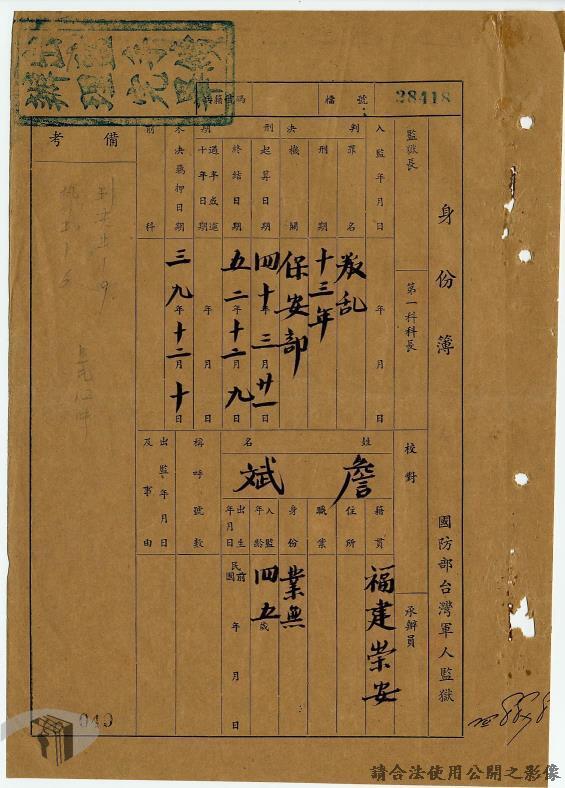 身份簿
國防部台灣軍人監獄
檔號 28418
監獄長
第一科科長
校對
承辦員
入監年月日 年 月 日
判罪名 叛乱
刑期 十三年
判決機關 保安部
刑期起算日期 四十年三月廿一日
終結日期 五二年十二月九日
年 月 日
未決羈押日期 三九年十二月十日
前科
姓名 詹斌
籍貫 福建崇安
住所
職業
身份 業無
入監年齡 四五歲
出生年月日 民前國 年 月 日
稱呼號數
出監年月日及事由
備考
049
請合法使用公開之影像